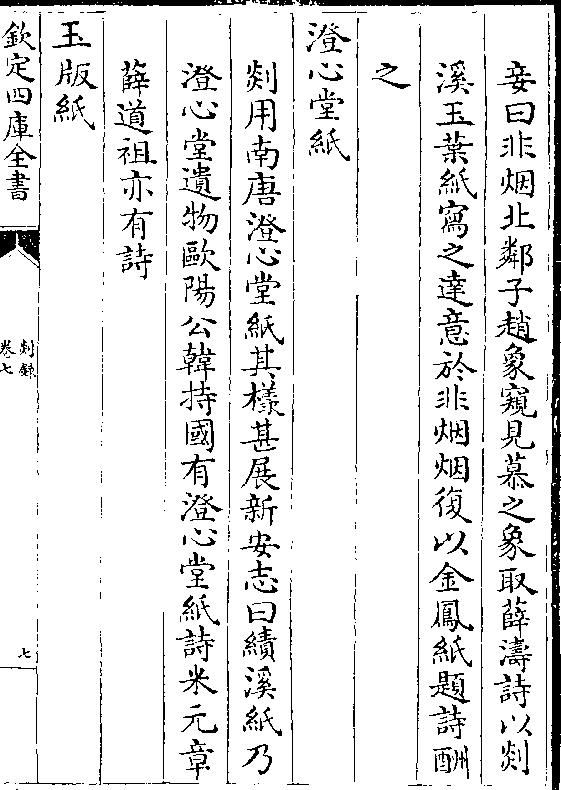 妾曰非烟北鄰子趙象窺見慕之象取薛濤詩以剡
溪玉葉紙寫之達意於非烟烟復以金鳳紙題詩酬
之
澄心堂紙
剡用南唐澄心堂紙其樣甚展新安志曰績溪紙乃
澄心堂遺物歐陽公韓持國有澄心堂紙詩米元章
薛道祖亦有詩
玉版紙
欽定四庫全書
剡錄
卷七
七